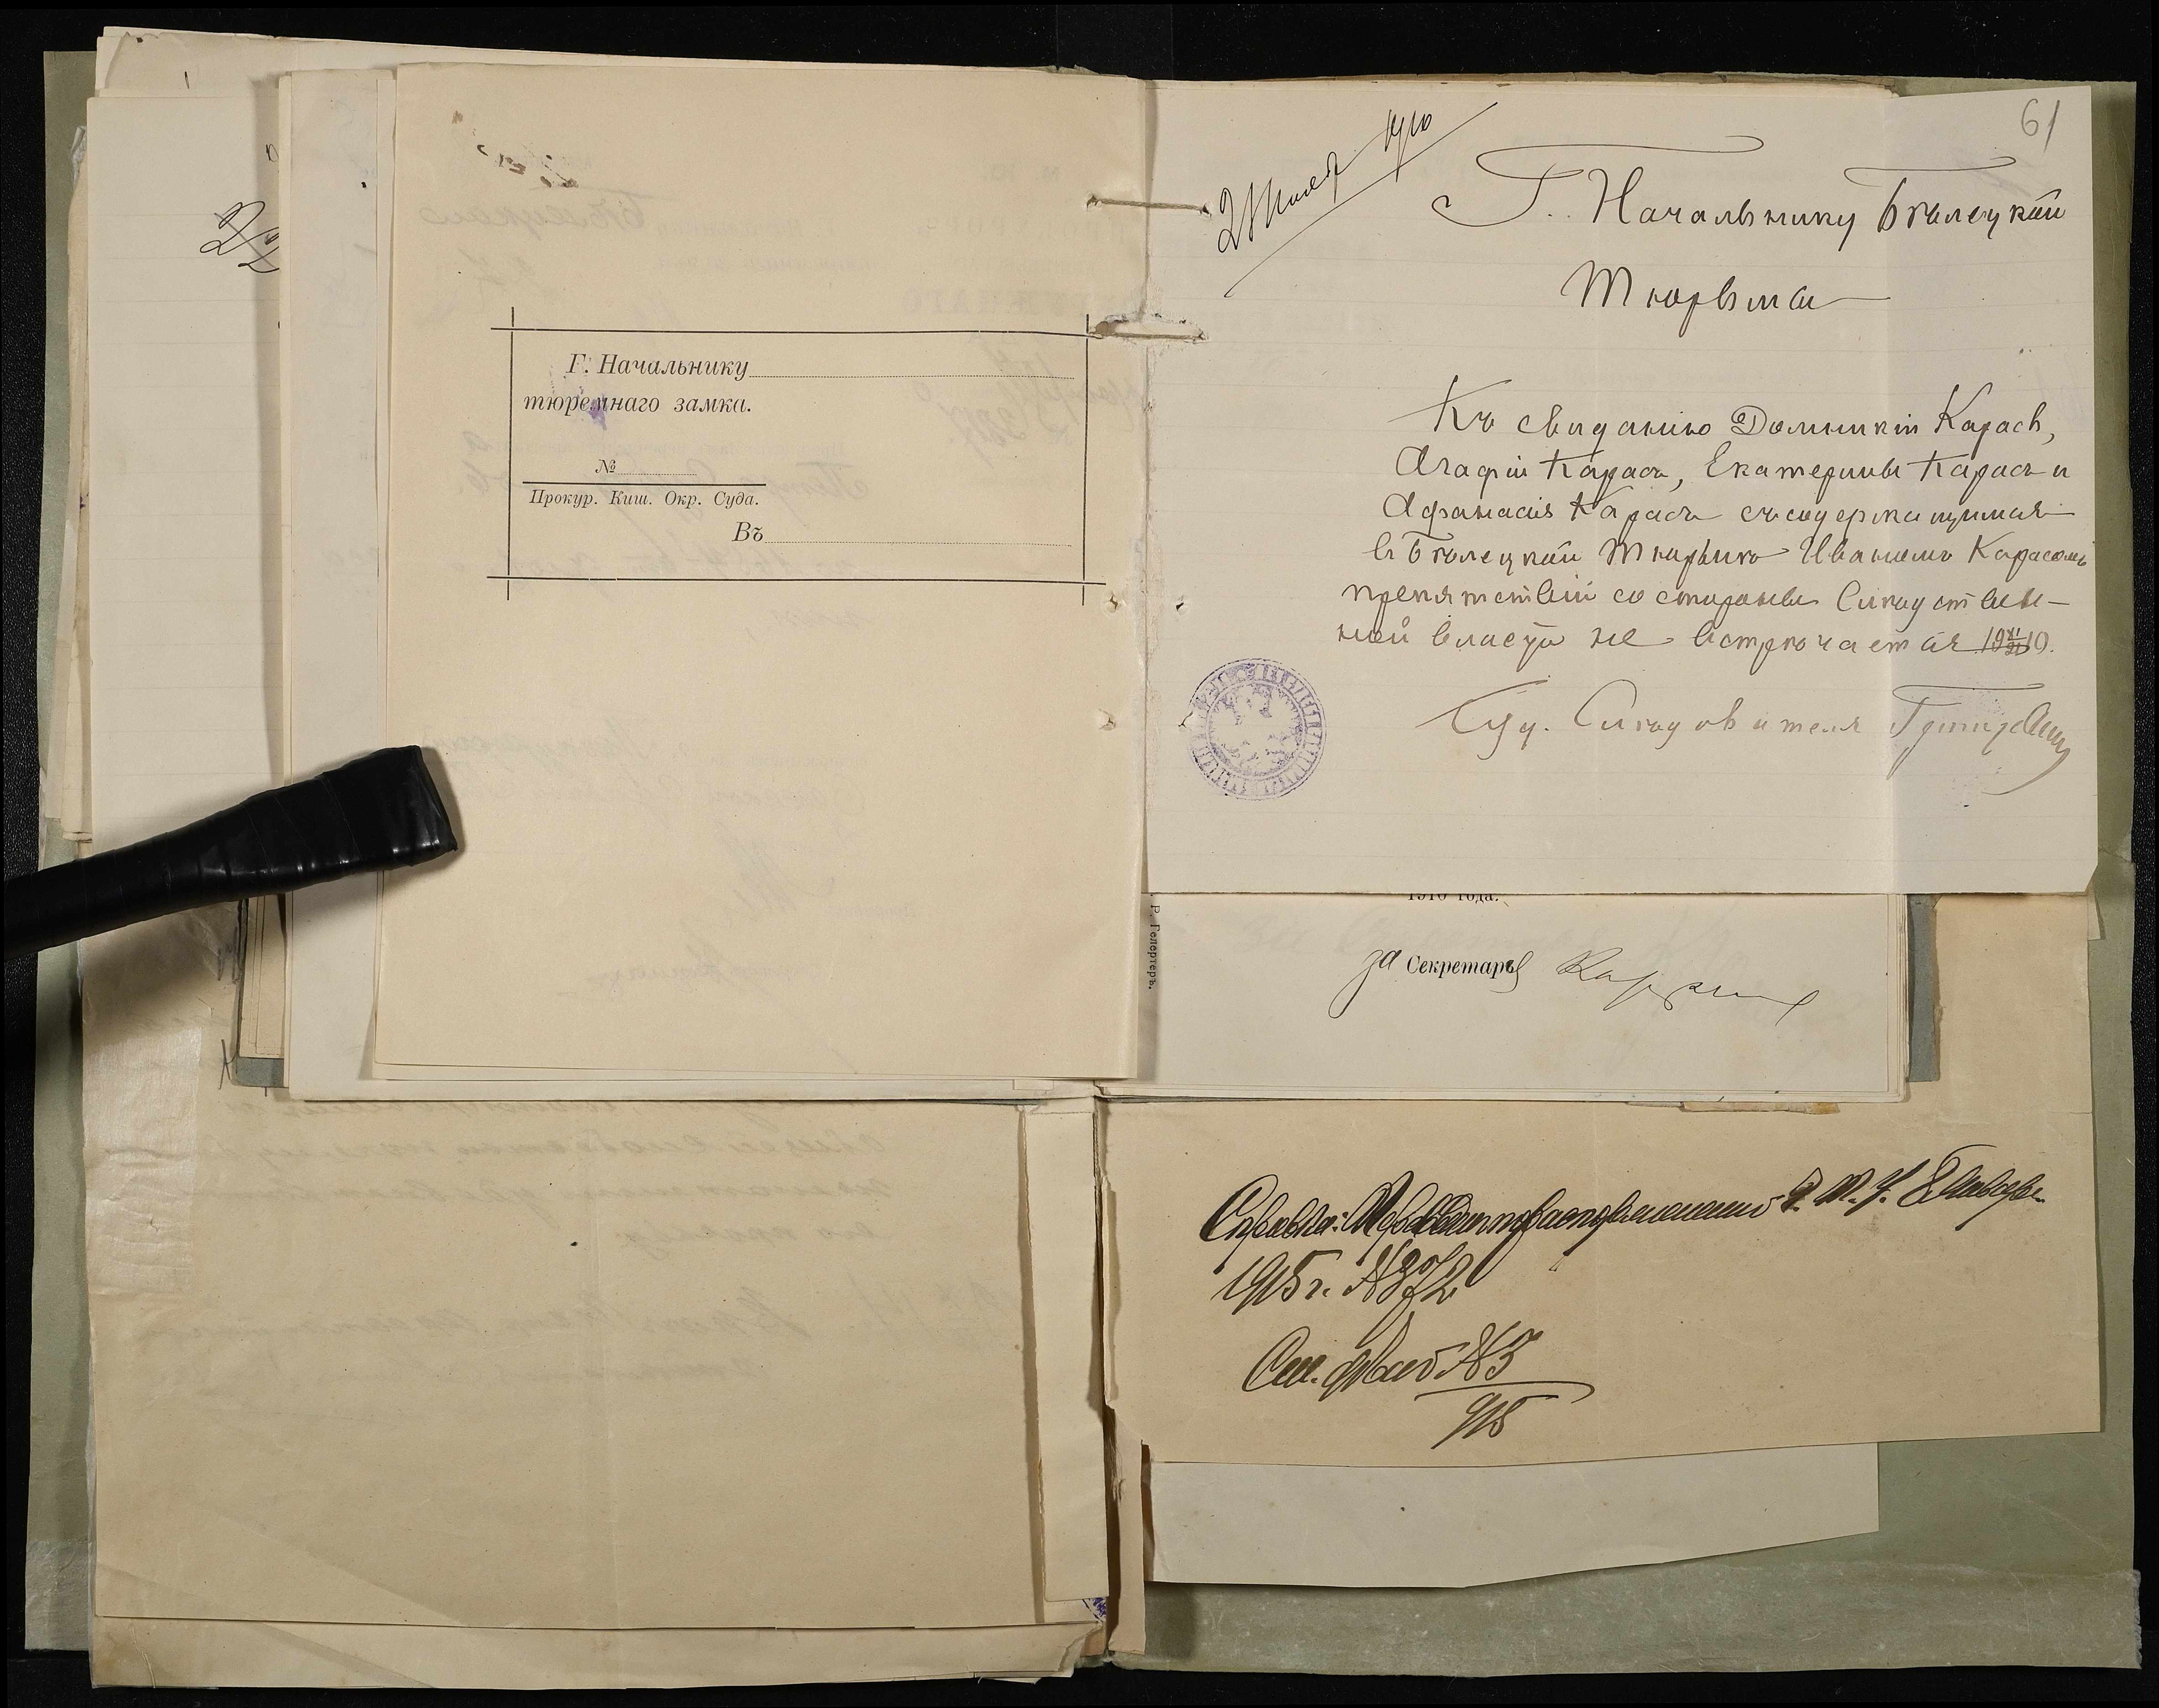 Г. Начальнику
тюремнаго замка.
№
Прокур. Киш. Окр. Суда.
Въ
61
21 Нояб 1910
Г. Начальнику Бѣлецкой
Тюрьмы
Къ свиданію Домникіи Карась,
Агафіи Карась, Екатерины Карась и
Афанасія Карась съ содержащимся
въ Бѣлецкой Тюрьмѣ Иваномъ Карасемъ
препятствій со стороны Слѣдствен-
ной власти не встрѣчается 19 XI/21 10.
Суд. Слѣдователя
1910 года.
за Секретаря
Р. Гелертеръ.
Справка:
1915 г. №
См. № 3
915